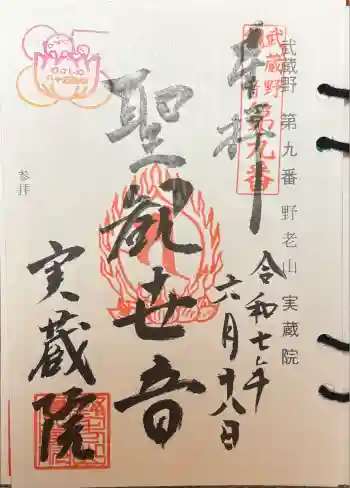 武蔵野 第九番 野老山 実蔵院
奉拝
武蔵野
第九番
令和七年
六月十八日
聖観世音
実蔵院
参拝